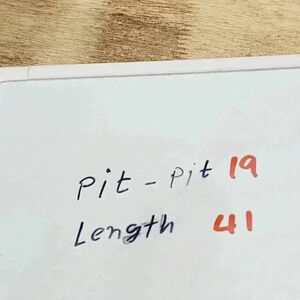 Pit - Pit 19
Length 41